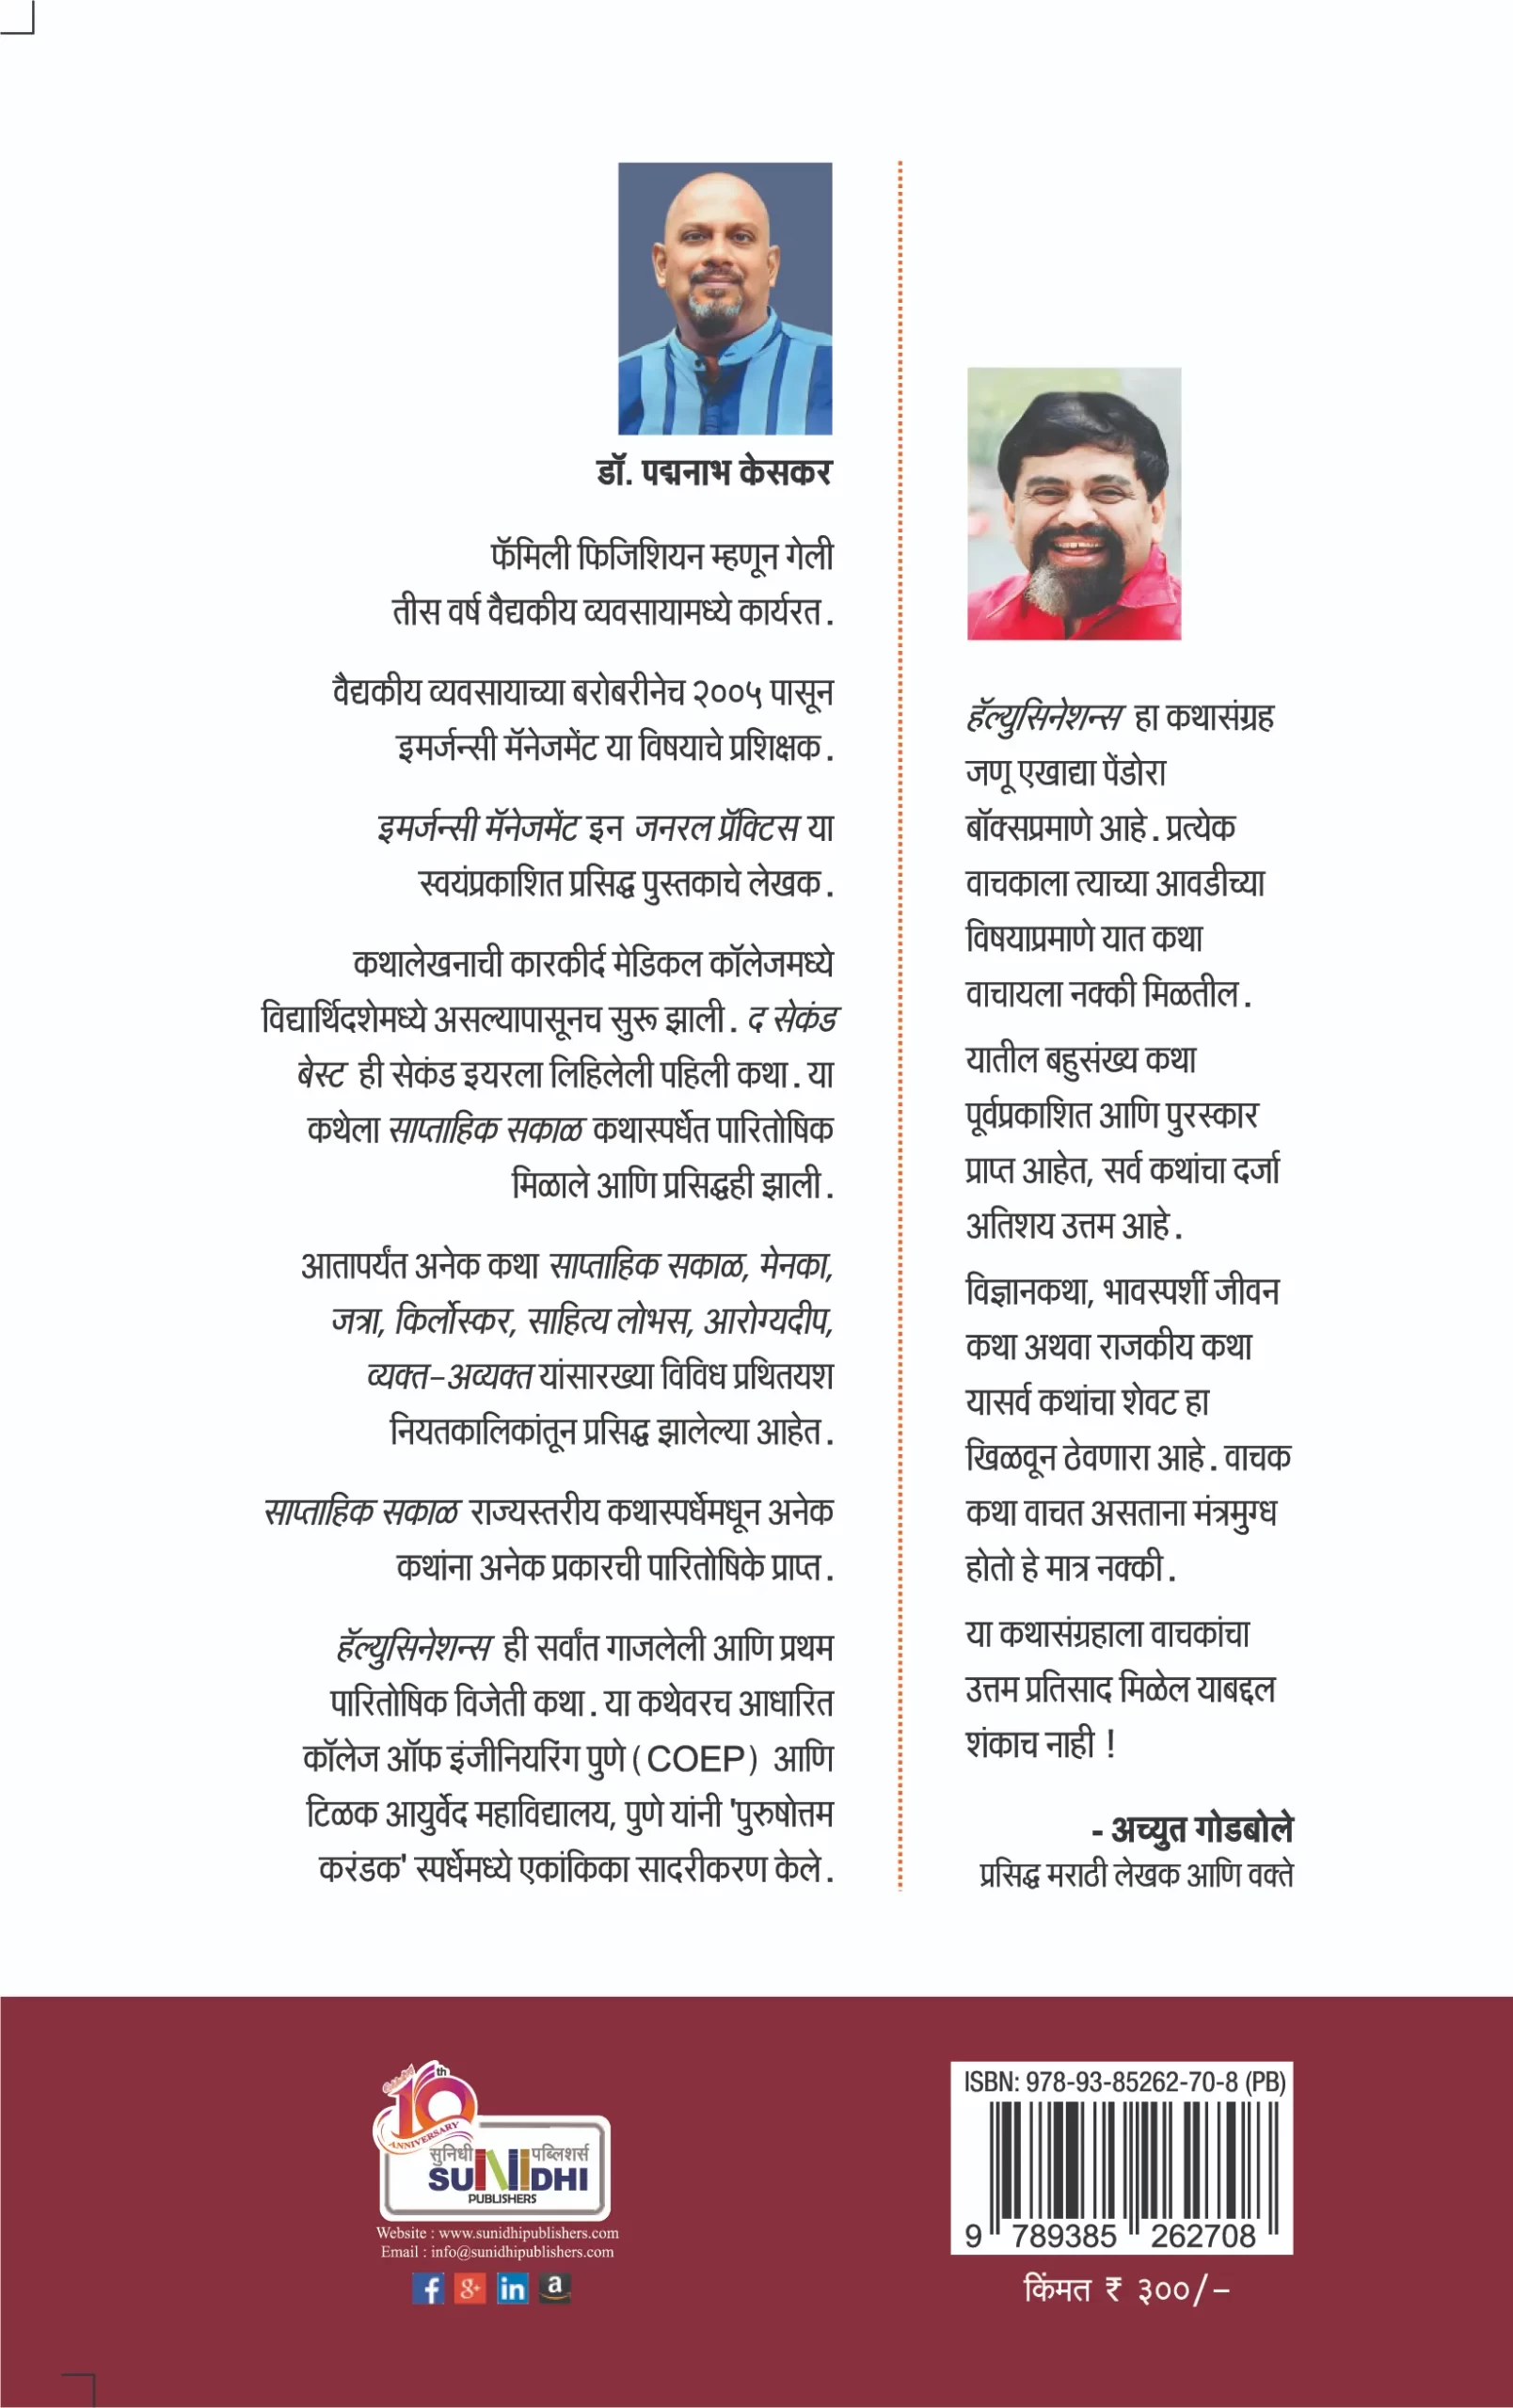 डॉ. पद्मनाभ केसकर
फॅमिली फिजिशियन म्हणून गेली
तीस वर्ष वैद्यकीय व्यवसायामध्ये कार्यरत.
वैद्यकीय व्यवसायाच्या बरोबरीनेच २००५ पासून
इमर्जन्सी मॅनेजमेंट या विषयाचे प्रशिक्षक.
इमर्जन्सी मॅनेजमेंट इन जनरल प्रॅक्टिस या
स्वयंप्रकाशित प्रसिद्ध पुस्तकाचे लेखक.
कथालेखनाची कारकीर्द मेडिकल कॉलेजमध्ये
विद्यार्थिदशेमध्ये असल्यापासूनच सुरू झाली. द सेकंड
बेस्ट ही सेकंड इयरला लिहिलेली पहिली कथा. या
कथेला साप्ताहिक सकाळ कथास्पर्धेत पारितोषिक
मिळाले आणि प्रसिद्धही झाली.
आतापर्यंत अनेक कथा साप्ताहिक सकाळ, मेनका,
जत्रा, किर्लोस्कर, साहित्य लोभस, आरोग्यदीप,
व्यक्त-अव्यक्त यांसारख्या विविध प्रथितयश
नियतकालिकांतून प्रसिद्ध झालेल्या आहेत.
साप्ताहिक सकाळ राज्यस्तरीय कथास्पर्धेमधून अनेक
कथांना अनेक प्रकारची पारितोषिके प्राप्त.
हॅल्युसिनेशन्स ही सर्वांत गाजलेली आणि प्रथम
पारितोषिक विजेती कथा. या कथेवरच आधारित
कॉलेज ऑफ इंजीनियरिंग पुणे (COEP) आणि
टिळक आयुर्वेद महाविद्यालय, पुणे यांनी 'पुरुषोत्तम
करंडक' स्पर्धेमध्ये एकांकिका सादरीकरण केले.
हॅल्युसिनेशन्स हा कथासंग्रह
जणू एखाद्या पेंडोरा
बॉक्सप्रमाणे आहे. प्रत्येक
वाचकाला त्याच्या आवडीच्या
विषयाप्रमाणे यात कथा
वाचायला नक्की मिळतील.
यातील बहुसंख्य कथा
पूर्वप्रकाशित आणि पुरस्कार
प्राप्त आहेत, सर्व कथांचा दर्जा
अतिशय उत्तम आहे.
विज्ञानकथा, भावस्पर्शी जीवन
कथा अथवा राजकीय कथा
यासर्व कथांचा शेवट हा
खिळवून ठेवणारा आहे. वाचक
कथा वाचत असताना मंत्रमुग्ध
होतो हे मात्र नक्की.
या कथासंग्रहाला वाचकांचा
उत्तम प्रतिसाद मिळेल याबद्दल
शंकाच नाही !
- अच्युत गोडबोले
प्रसिद्ध मराठी लेखक आणि वक्ते
10th
ANNIVERSARY
सुनिधी पब्लिशर्स
SUNIDHI
PUBLISHERS
Website : www.sunidhipublishers.com
Email : info@sunidhipublishers.com
f g+ in a
ISBN: 978-93-85262-70-8 (PB)
9 789385 262708
किंमत ₹ ३००/-